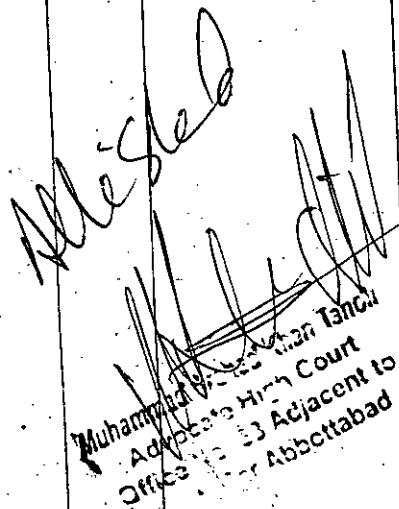 Attested
Muhammad Khan Tanoli
Advocate High Court
Office No. 33 Adjacent to
Abbottabad